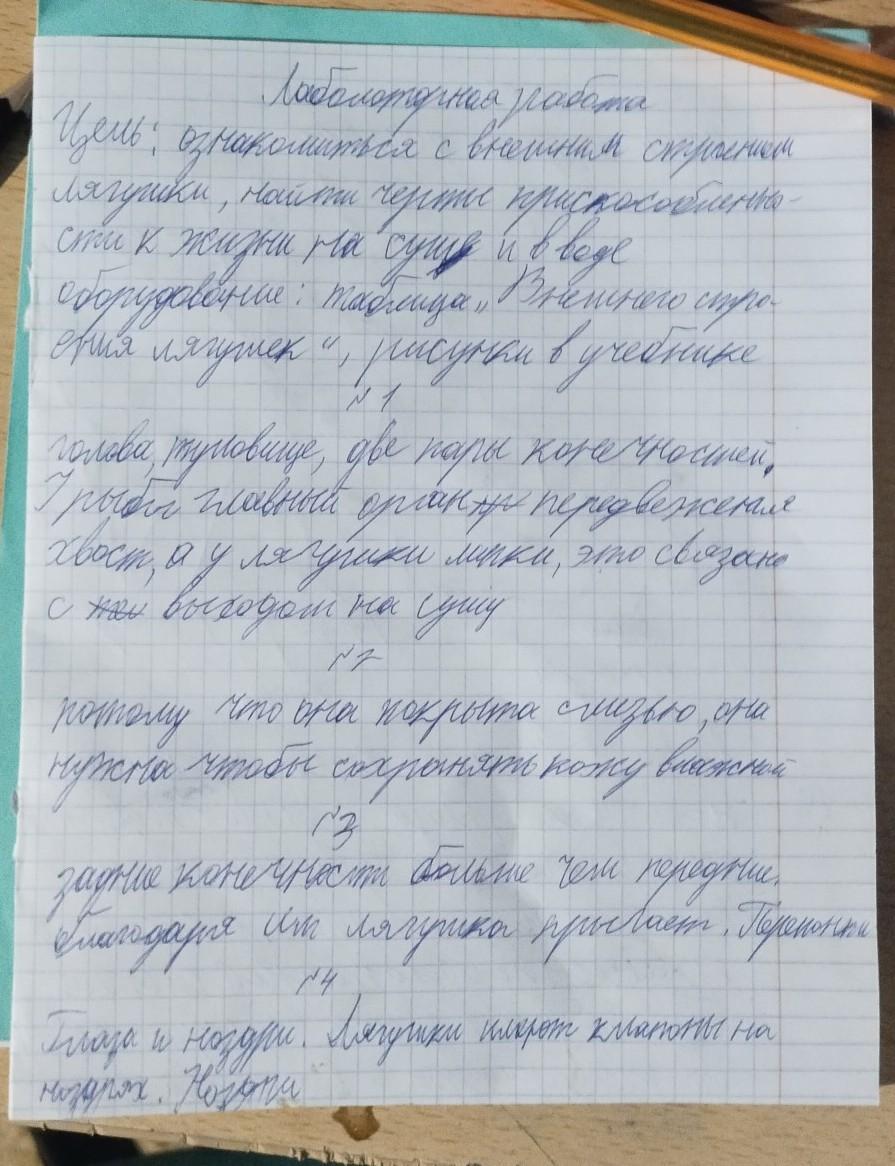 Лаболоторная работа
Цель: ознакомиться с внешним строением
лягушки, найти черты приспособленно-
сти к жизни на суше и в воде
оборудование: таблица „Внешнего стро-
ения лягушек“, рисунки в учебнике
№1
голова, туловище, две пары конечностей.
У рыбы главный орган передвежения
хвост, а у лягушки лапки, это связано
с выходом на сушу
№2
потому что она покрыта слизью, она
нужна чтобы сохранять кожу влажной
№3
задние конечности больше чем передние.
благодаря им лягушка прыгает. Перепонки
№4
Глаза и ноздри. Лягушки имеют клапоны на
ноздрях. Ноздри